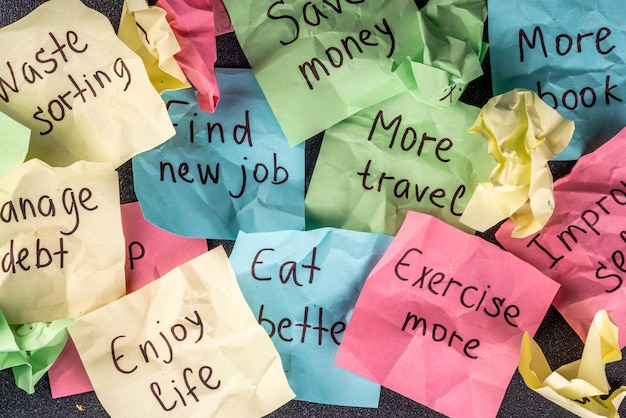 Waste
sorting
Save
money
More
book
Find
new job
More
travel
anage
debt
p
Eat
bette
Exercise
more
Improv
se
Enjoy
life